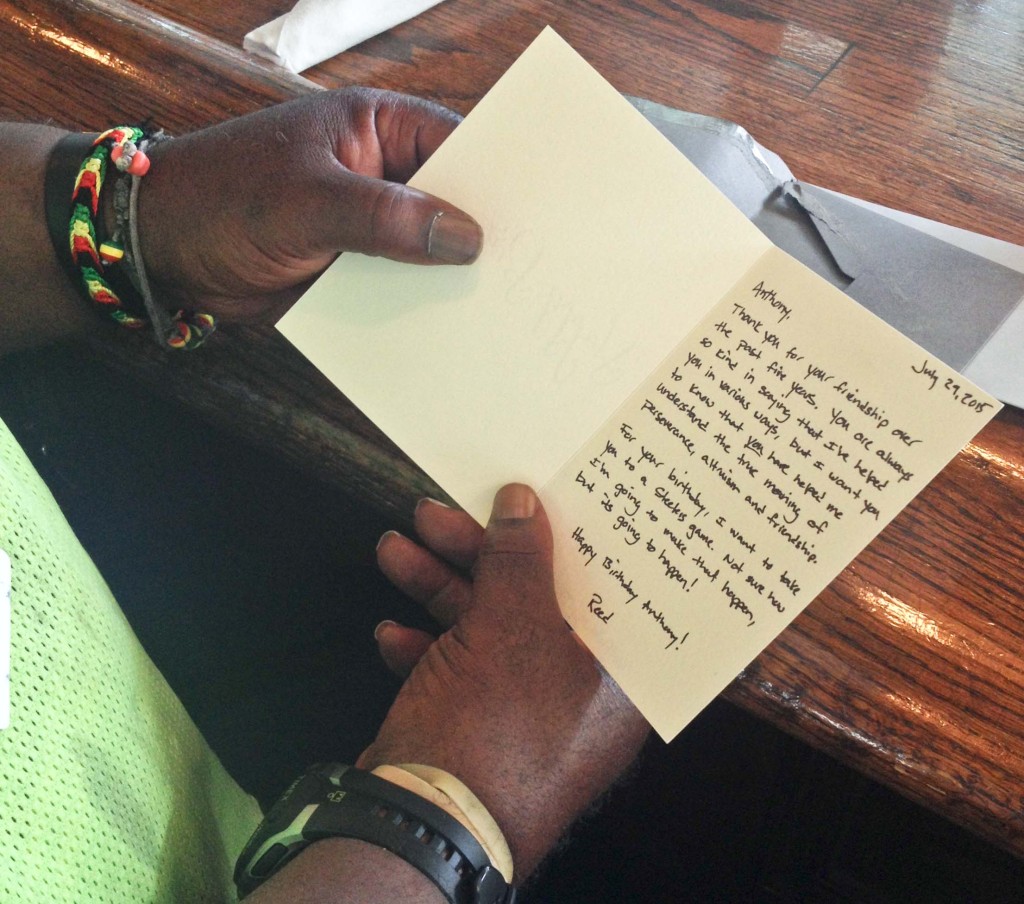 July 29, 2015
Anthony,
Thank you for your friendship over
the past five years. You are always
so kind in saying that I've helped
you in various ways, but I want you
to know that you have helped me
understand the true meaning of
perseverance, altruism and friendship.
For your birthday, I want to take
you to a Steelers game. Not sure how
I'm going to make that happen,
but its going to happen!
Happy Birthday Anthony!
Reed